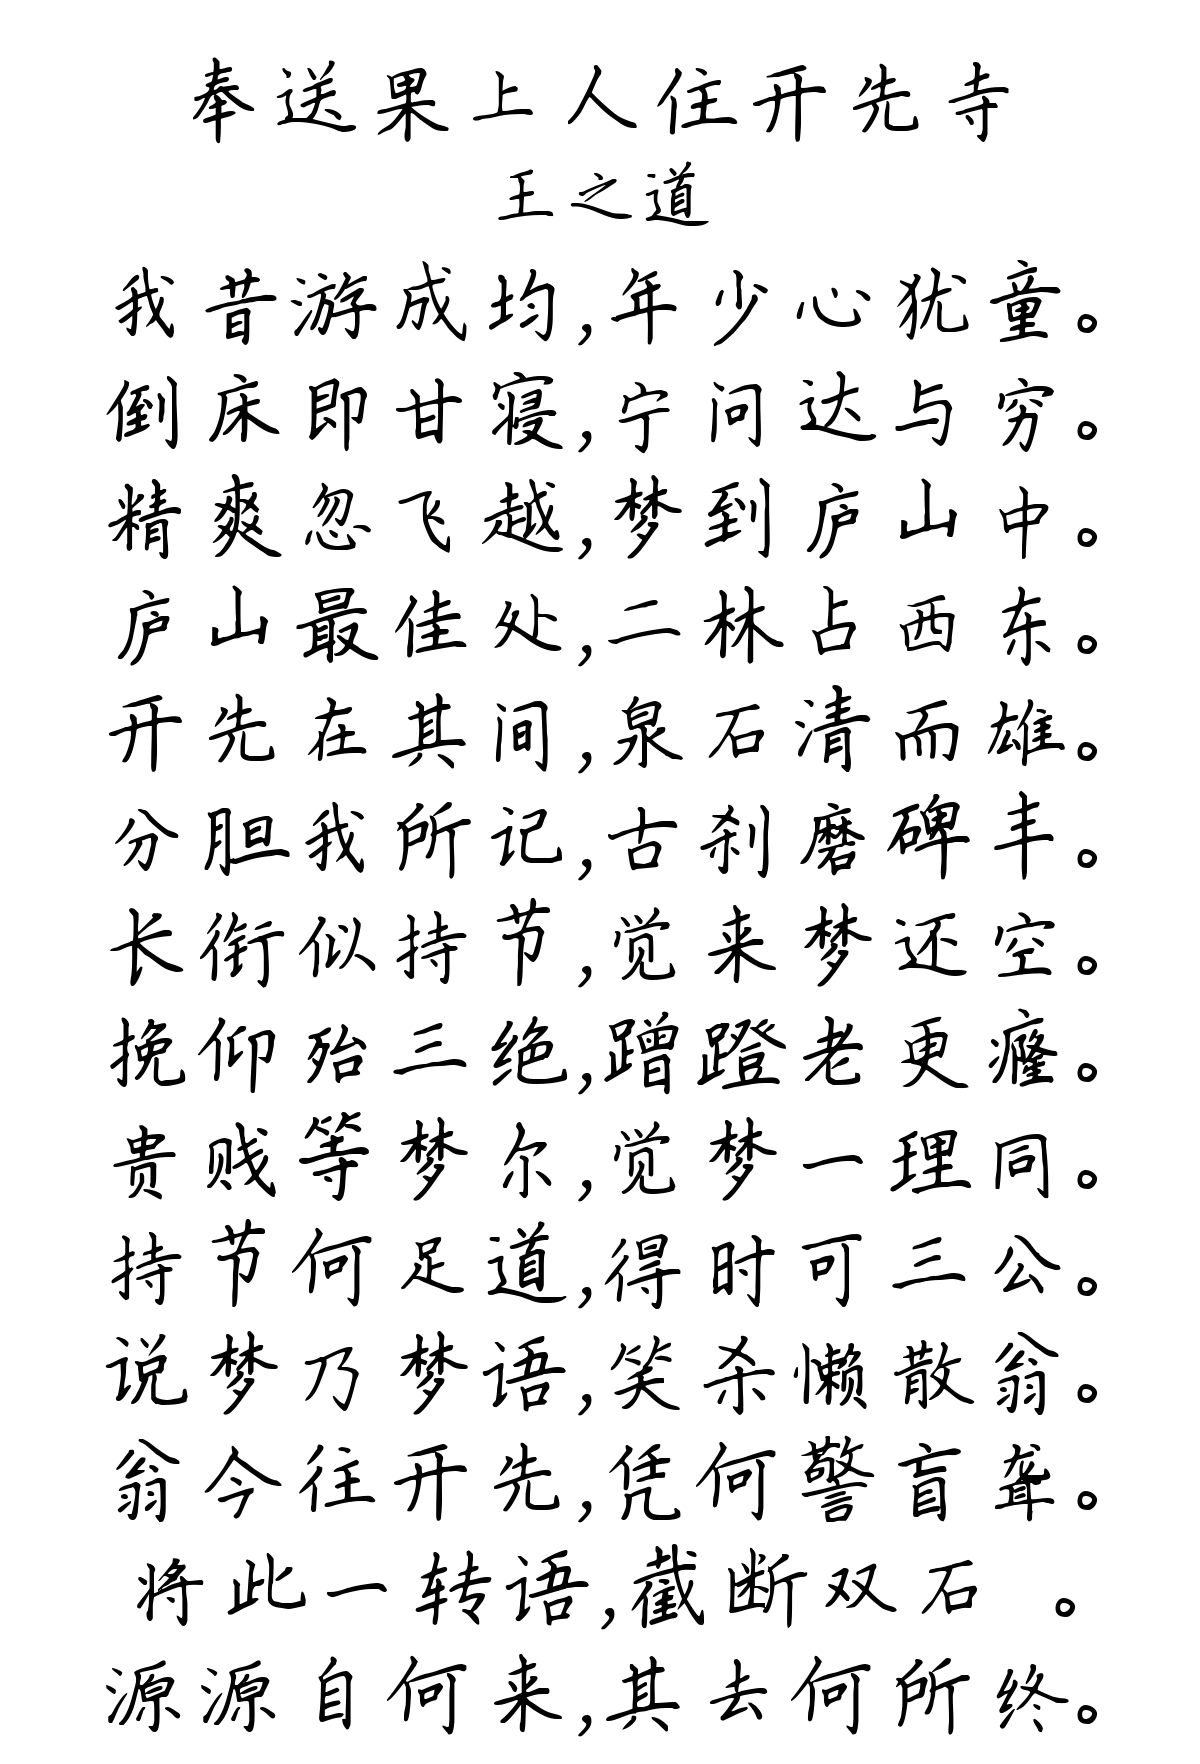 奉送果上人住开先寺
王之道
我昔游成均,年少心犹童。
倒床即甘寝,宁问达与穷。
精爽忽飞越,梦到庐山中。
庐山最佳处,二林占西东。
开先在其间,泉石清而雄。
分胆我所记,古刹磨碑丰。
长衔似持节,觉来梦还空。
挽仰殆三绝,蹭蹬老更癃。
贵贱等梦尔,觉梦一理同。
持节何足道,得时可三公。
说梦乃梦语,笑杀懒散翁。
翁今往开先,凭何警盲聋。
将此一转语,截断双石 。
源源自何来,其去何所终。